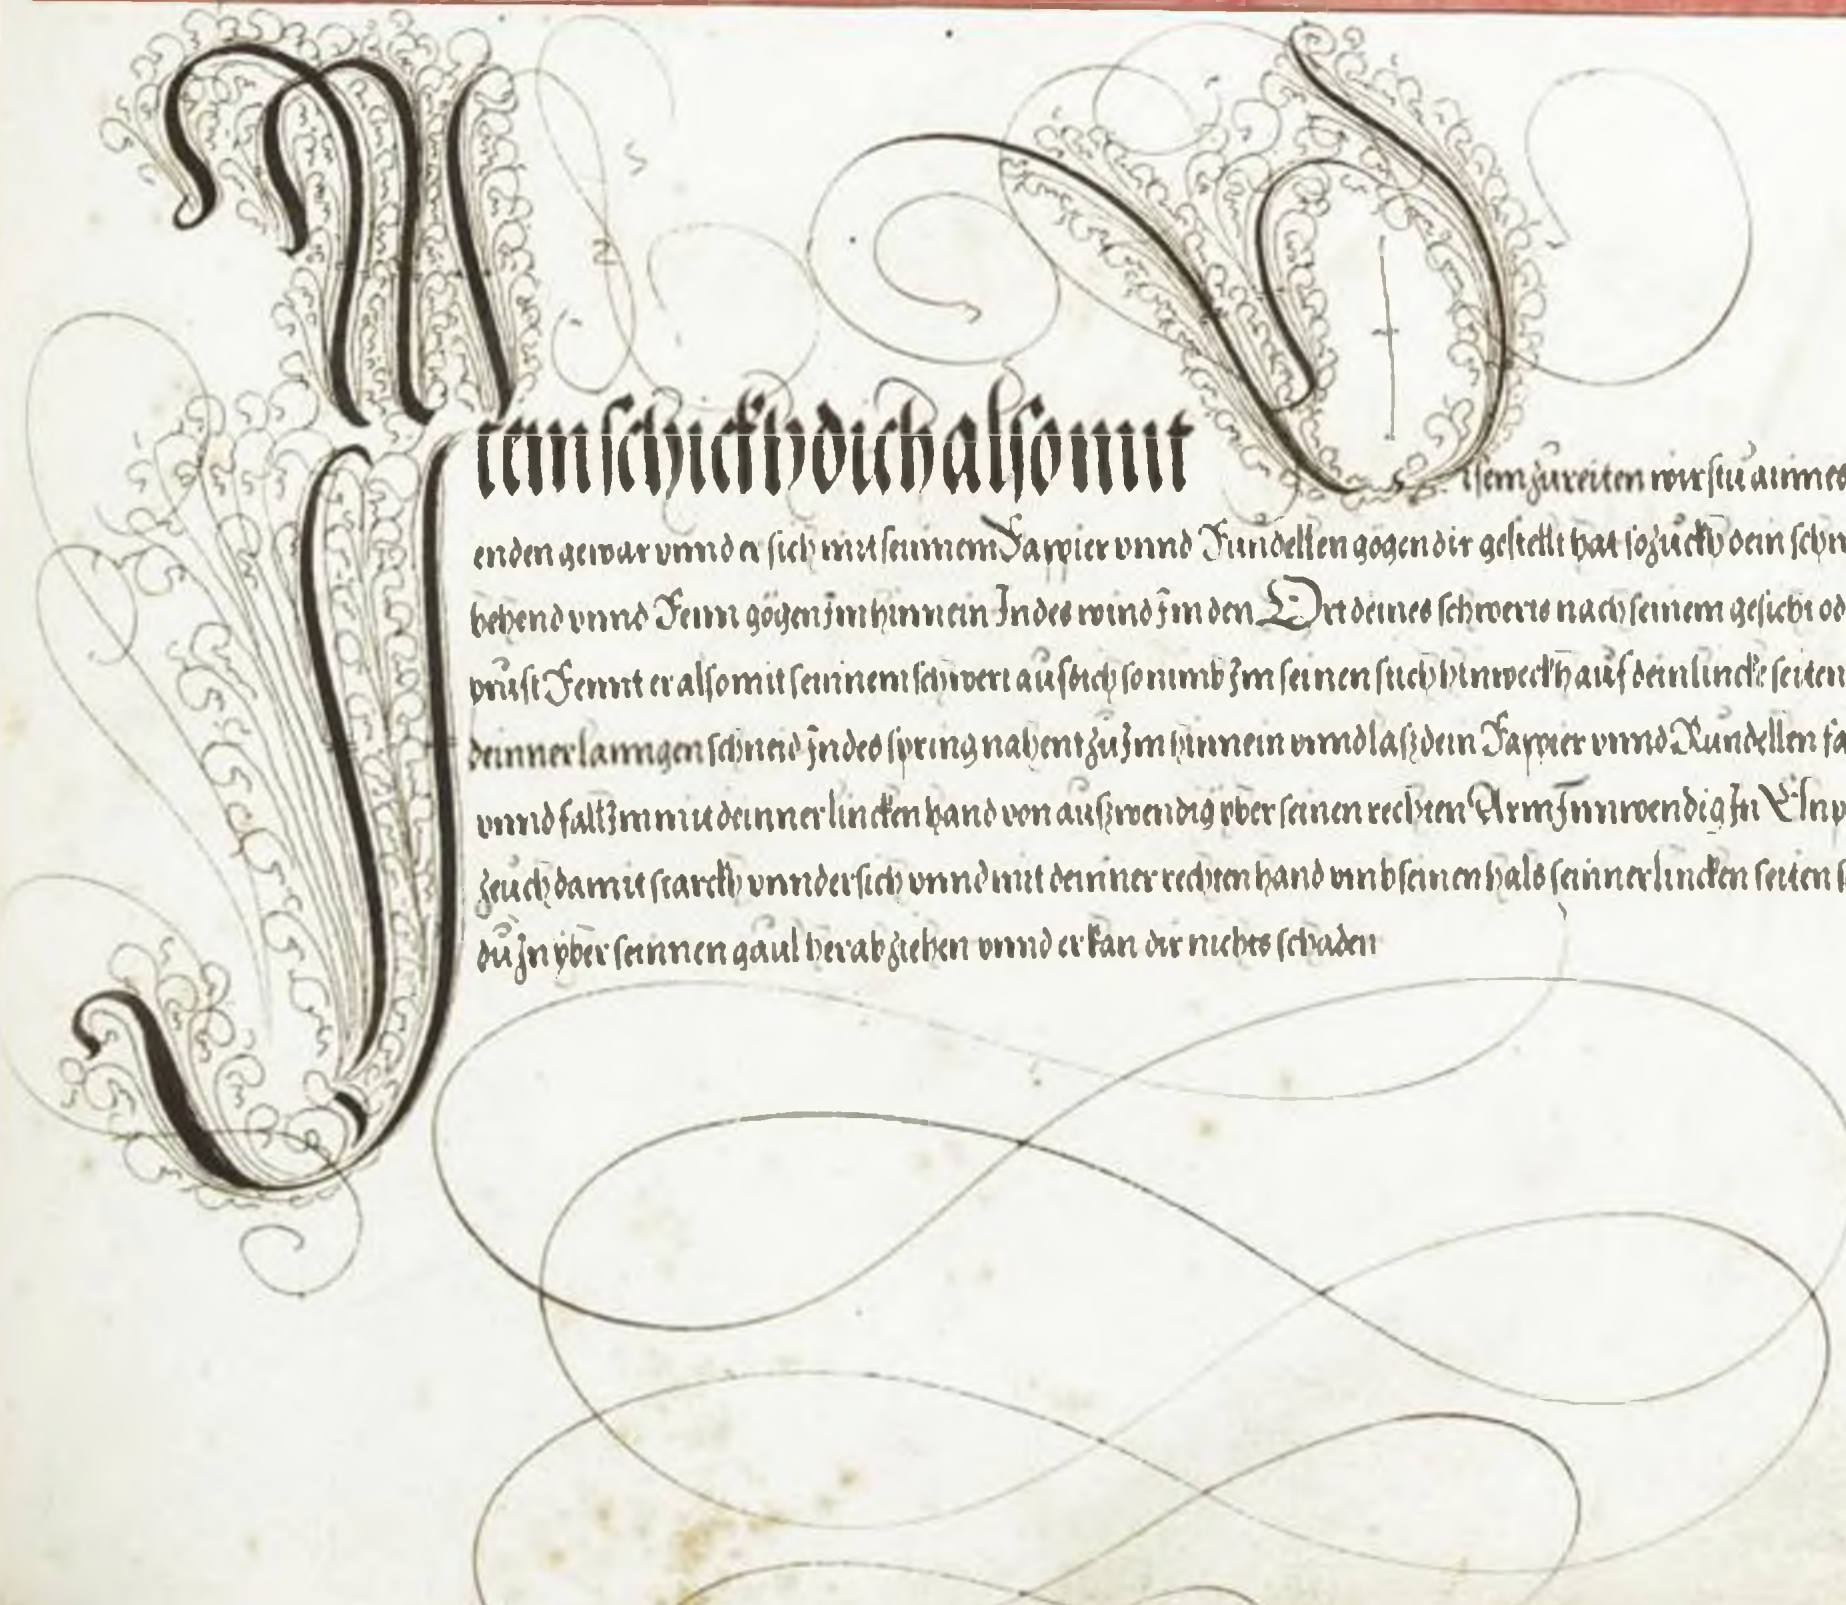 Item schickh dich also mit
disem zureiten wirstu aines
enden gewar vnnd er sich mit seinnem Rappier vnnd Rundellen gögen dir gestellt hat so zuckh dein schw
behend vnnd Renn gögen Im hinnein Indes wind Im den Ort deines schwerts nach seinem gesicht od
prust Rennt er also mit seinnem schwert auf dich so nimb Im seinen stich hinweckh auf dein lincke seiten
deinner lanngen schneid Indes spring nahent zu Im hinnein vnnd lasz dein Rappier vnnd Rundellen fa
vnnd fall Im mit deinner lincken hand von auszwendig yber seinen rechten Arm Innwendig In
zeuch damit starckh vnndersich vnnd mit deinner rechten hand vmb seinen hals seinner lincken seiten
du In yber seinnen gaul herab ziehen vnnd er kan dir nichts schaden